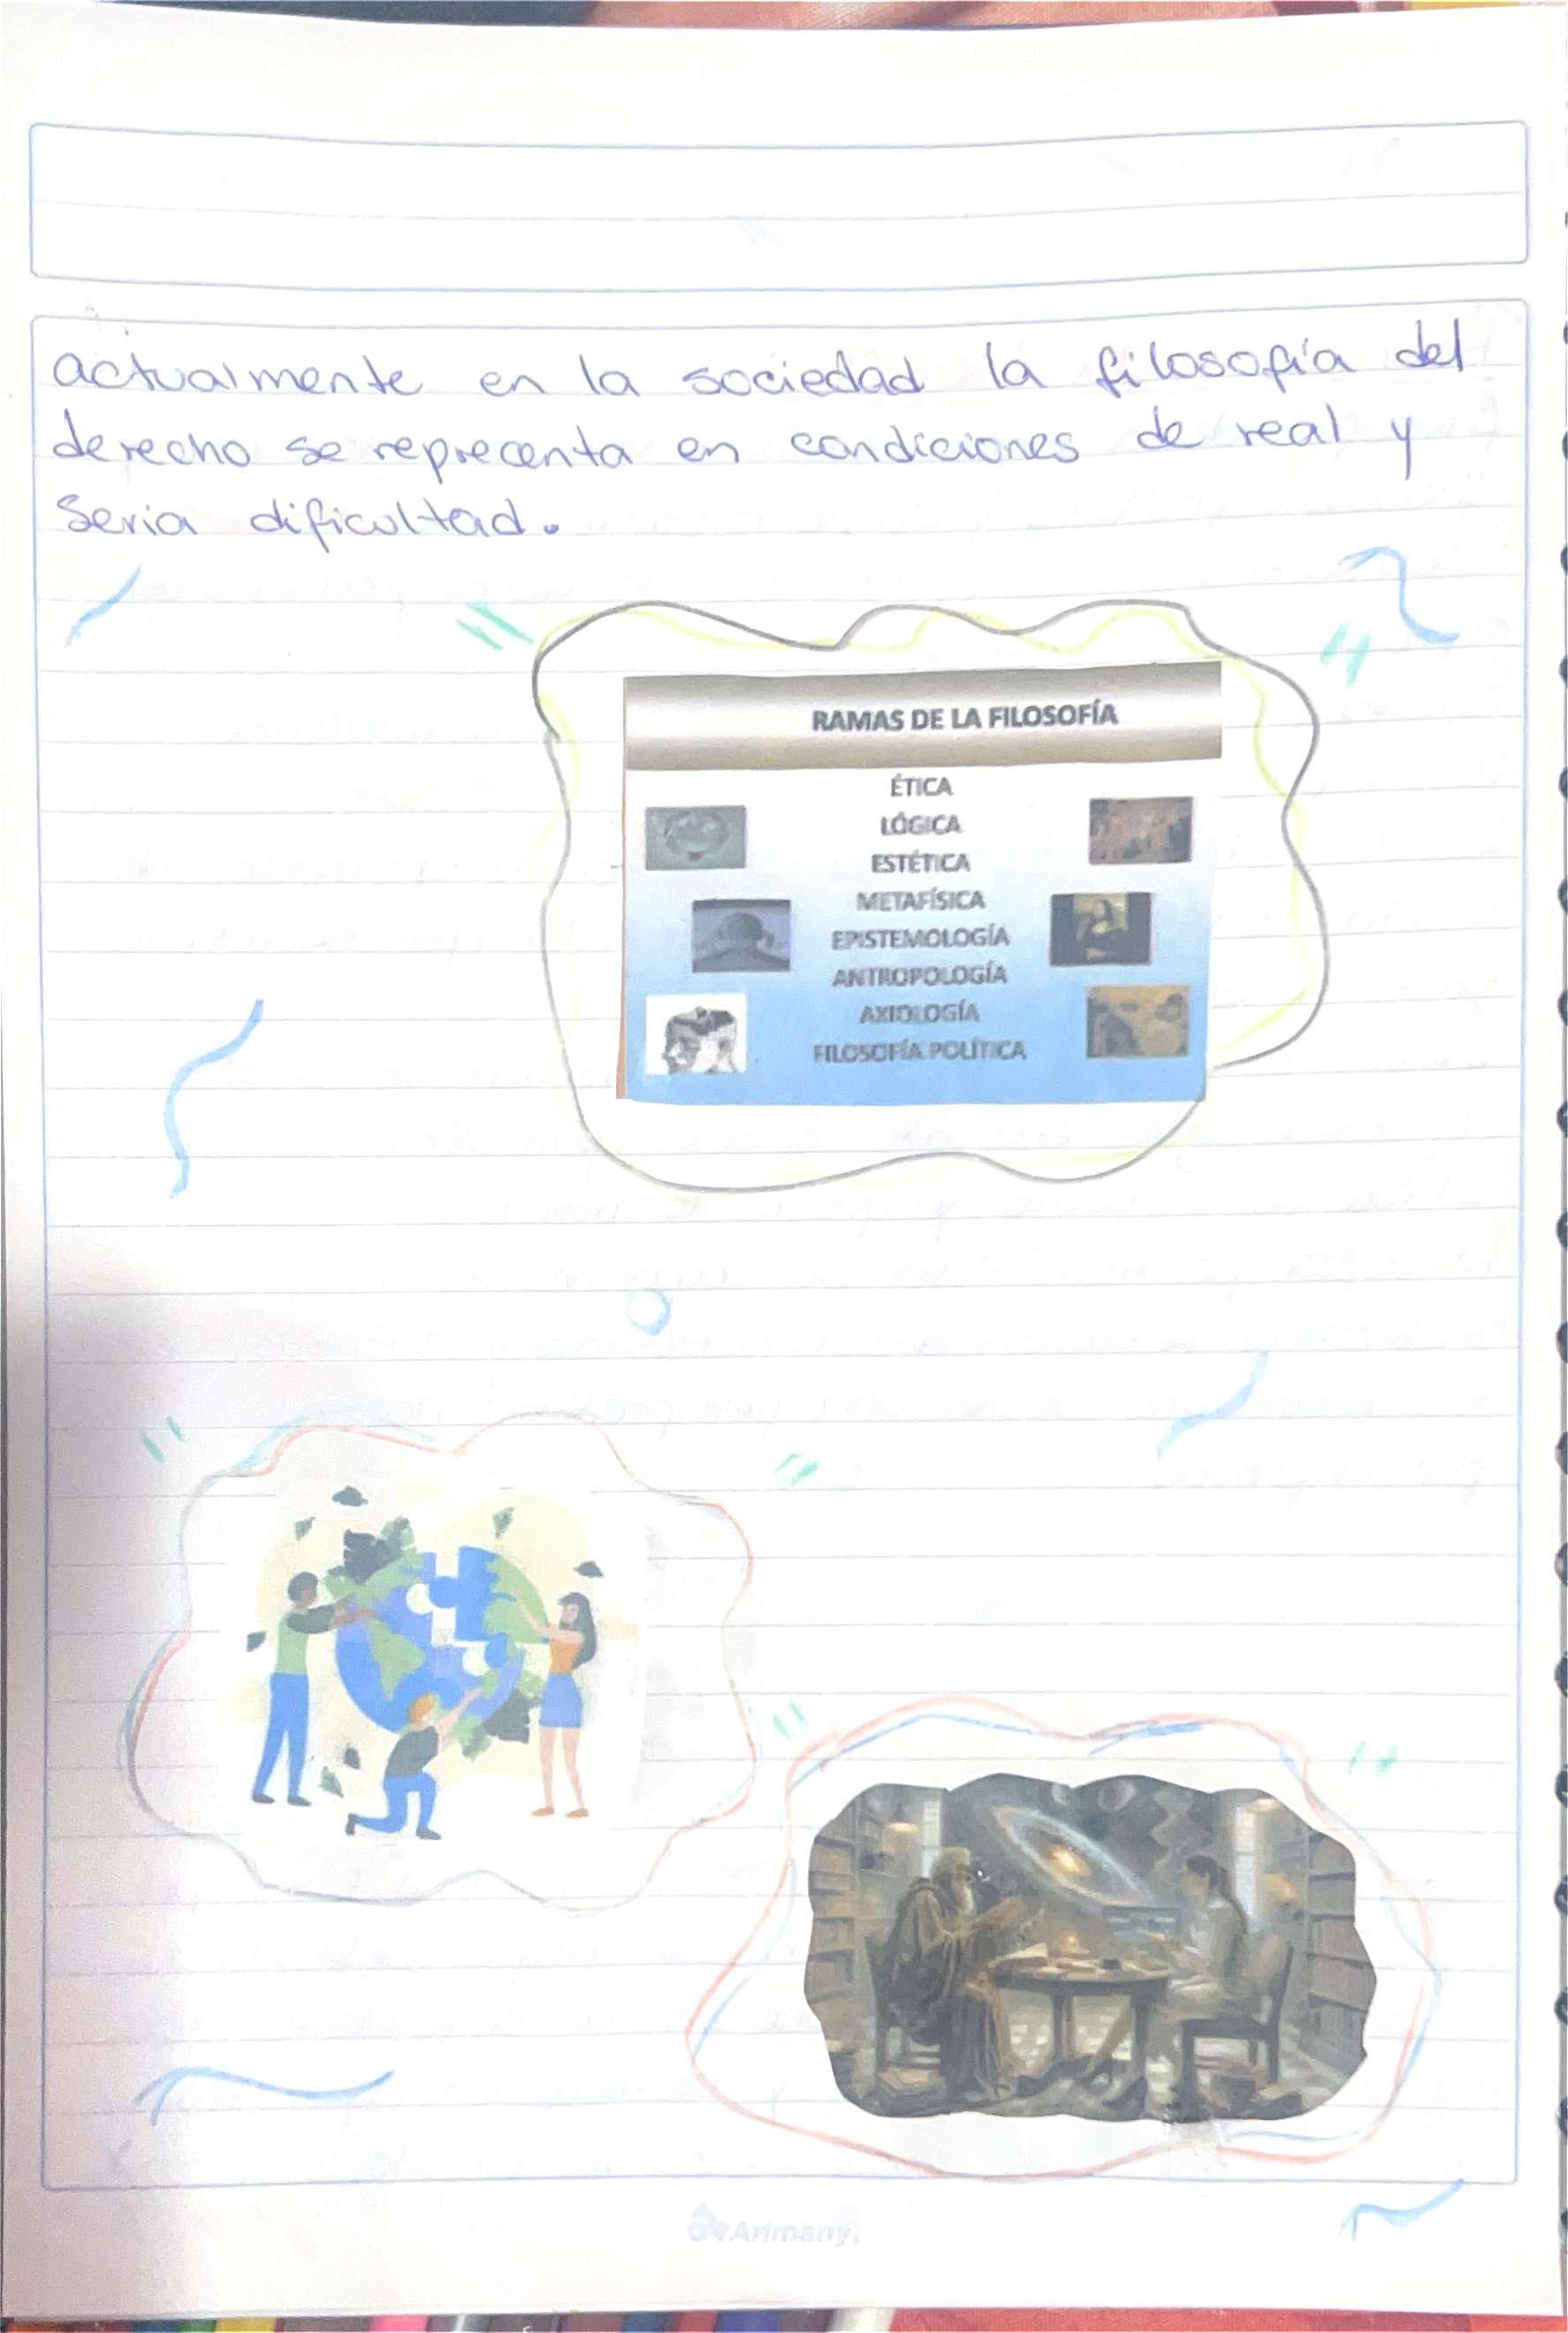 actualmente en la sociedad la filosofía del
derecho se reprecenta en condiciones de real y
seria dificultad.
RAMAS DE LA FILOSOFÍA
ÉTICA
LÓGICA
ESTÉTICA
METAFÍSICA
EPISTEMOLOGÍA
ANTROPOLOGÍA
AXIOLOGÍA
FILOSOFÍA POLÍTICA
Arimany